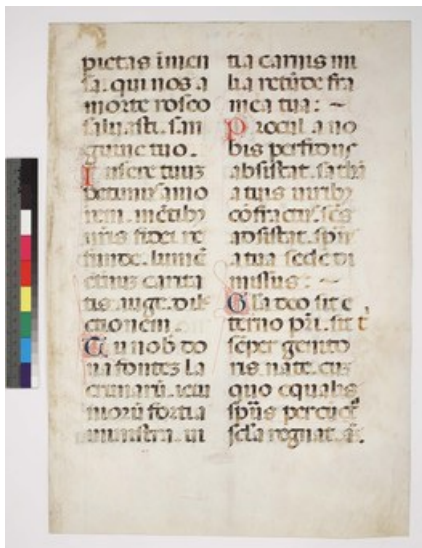 pietas inmen
sa. qui nos a
morte roseo
saluasti. san
guine tuo.
Insere tuuz
petimus amo
rem. mētibȝ
nr̄is fidei re
funde. lumē
carita
tis. auge. dile
ctionem.
Tu nob̄ do
na fontes la
crimarū. ieiu
niorū fortia
ministra. ui
tia carnis mi
lia retūde fra
mea tua: ~
Procul a no
bis perfidus
absistat. satha
a tuis uiribȝ
cōfractus. scs
adsistat. spūs
a tua sede di
missus: ~
Gl̄a deo sit e
terno pr̄i. sit t̄
semper genito
ris nate. cuȝ
quo equalis
spūs per cuncta
scl̄a regnat. a.